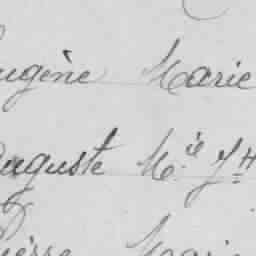 Eugène Marie
Auguste M.ie Jh
Pierre Marie